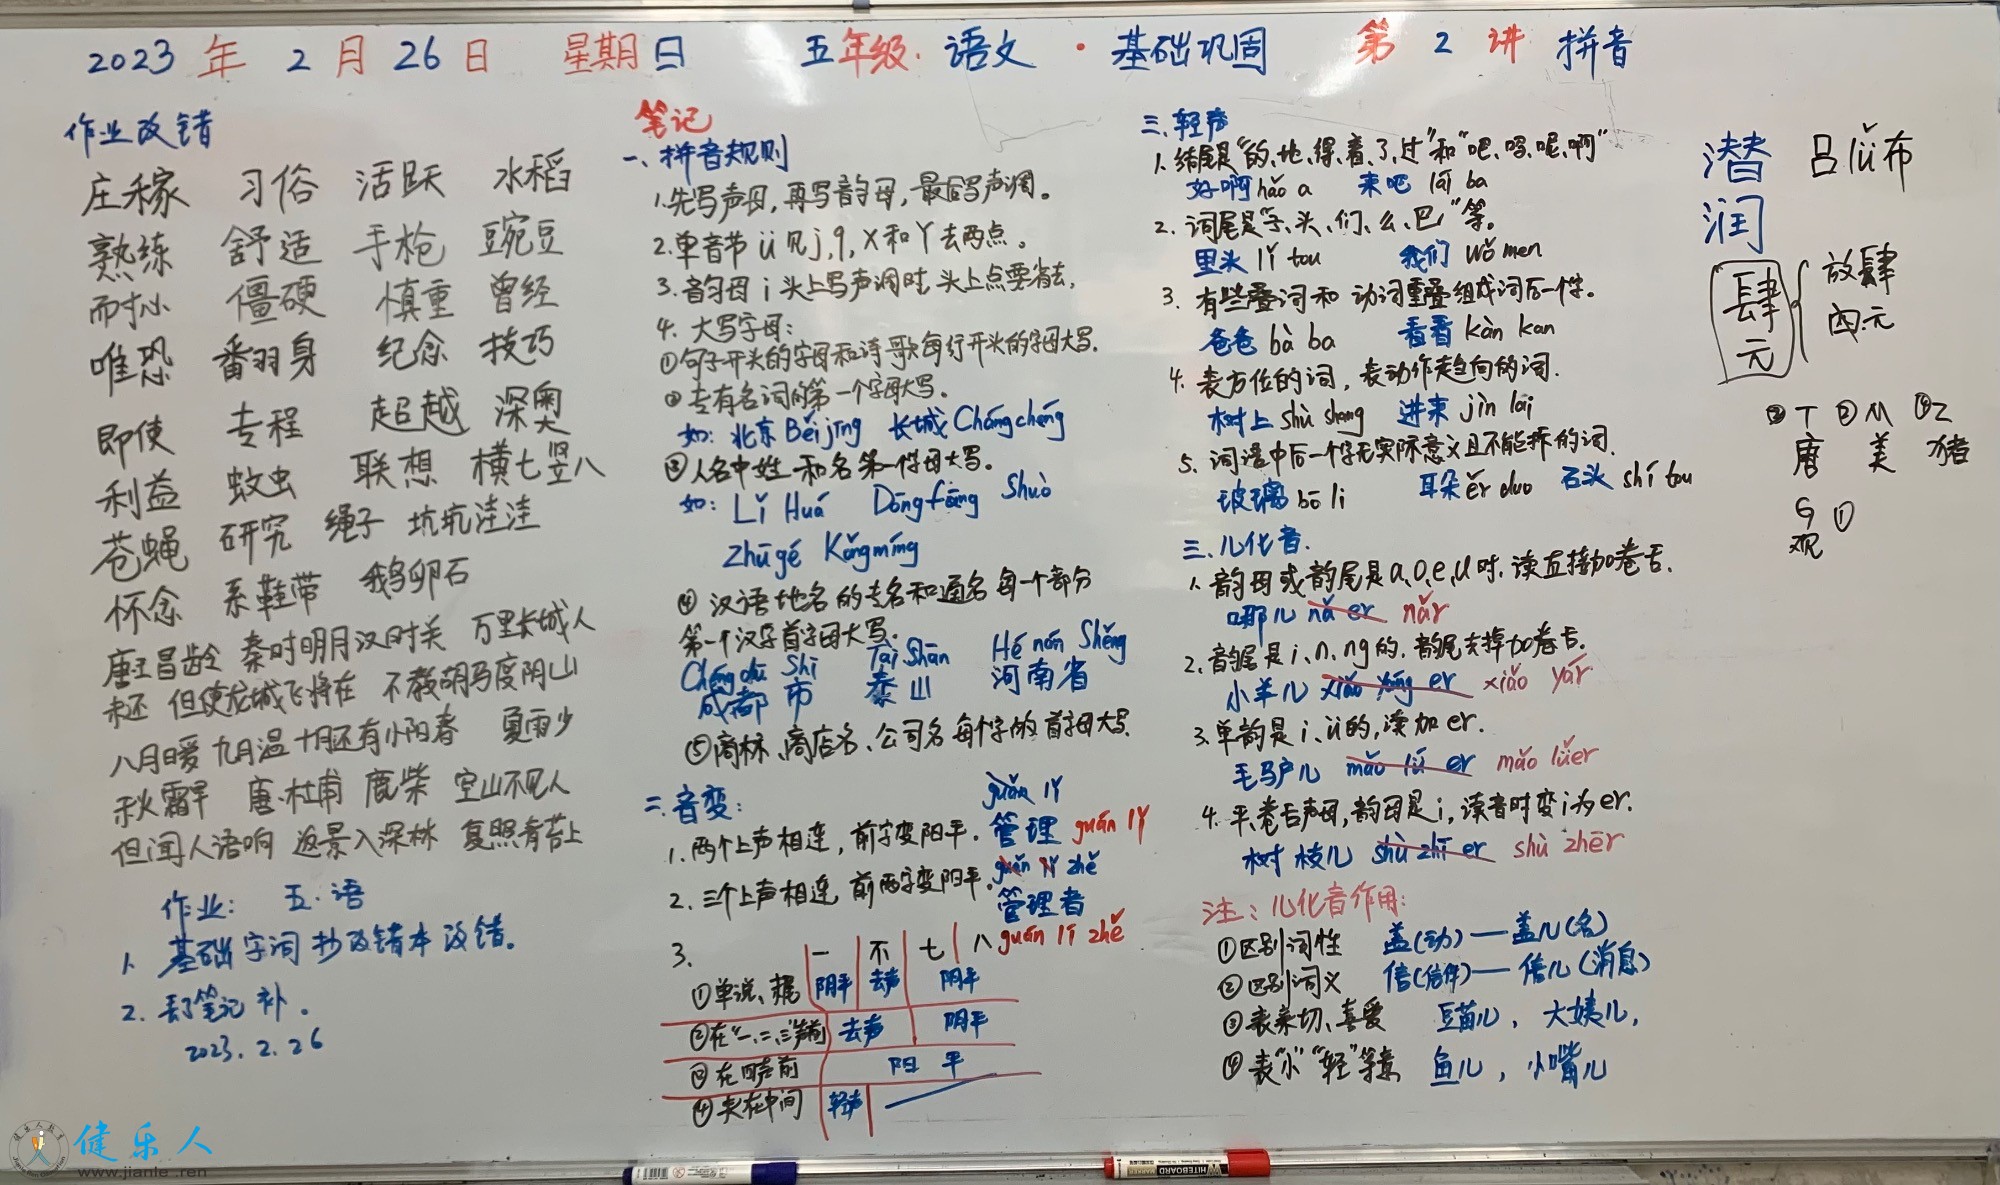 2023 年 2 月 26 日 星期日 五年级·语文·基础巩固 第 2 讲 拼音
作业改错
庄稼 习俗 活跃 水稻
熟练 舒适 手枪 豌豆
耐心 僵硬 慎重 曾经
唯恐 翻身 纪念 技巧
即使 专程 超越 深奥
利益 蚊虫 联想 横七竖八
苍蝇 研究 绳子 坑坑洼洼
怀念 系鞋带 鹅卵石
唐王昌龄 秦时明月汉时关 万里长城人
未还 但使龙城飞将在 不教胡马度阴山
八月暖 九月温 十月还有小阳春 夏雨少
秋霜早 唐·杜甫 鹿柴 空山不见人
但闻人语响 返景入深林 复照青苔上
作业: 五·语
1. 基础字词抄改错本改错。
2. 弄笔记补。
2023.2.26
笔记
一、拼音规则
1.先写声母,再写韵母,最后写声调。
2.单音节 ü 见 j,q,x 和 y 去两点。
3.韵母 i 头上写声调时 头上点要省去,
4. 大写字母:
①句子开头的字母和诗歌每行开头的字母大写.
②专有名词的第一个字母大写.
如: 北京 Běijīng 长城 Chángchéng
③人名中姓和名第一个字母大写。
如: Lǐ Huá Dōngfāng Shuò
Zhūgé Kǒngmíng
④ 汉语地名的专名和通名每一个部分
第一个汉字首字母大写.
Chéngdū Shì Tài Shān Hénán Shěng
成都 市 泰山 河南省
⑤商标、商店名、公司名每个字的首字母大写.
二、音变:
guǎn lǐ
1.两个上声相连,前字变阳平. 管理 guán lǐ
guǎn lǐ zhě
2.三个上声相连,前两字变阳平. 管理者
guán lí zhě
3. 一 不 七 八
①单说、末尾 阴平 去声 阴平
②在“一、二、三”声前 去声 阴平
③在四声前 阳平
④夹在中间 轻声
三、轻声
1.结尾是“的、地、得、着、了、过”和“吧、吗、呢、啊”
好啊 hǎo a 来吧 lái ba
2. 词尾是“子、头、们、么、巴”等。
里头 lǐ tou 我们 wǒ men
3. 有些叠词和 动词重叠组成词后一个字。
爸爸 bà ba 看看 kàn kan
4. 表方位的词,表动作趋向的词.
树上 shù shang 进来 jìn lai
5. 词语中后一个字无实际意义且不能拆的词.
玻璃 bō li 耳朵 ěr duo 石头 shí tou
三、儿化音.
1. 韵母或韵尾是a、o、e、u时,读直接加卷舌.
哪儿 nǎ er nǎr
2.韵尾是i、n、ng的,韵尾去掉加卷舌.
小羊儿 xiǎo yáng er xiǎo yár
3.单韵是i、ü的,读加er.
毛驴儿 máo lú er máo lǘer
4. 平、卷舌声母,韵母是i,读音时变i为er.
树枝儿 shù zhī er shù zhēr
注: 儿化音作用:
①区别词性 盖(动)—盖儿(名)
②区别词义 信(信件)—信儿(消息)
③表亲切、喜爱 豆苗儿, 大姨儿,
④表“小”“轻”等意 鱼儿, 小嘴儿
潜 吕lǚ布
润
肆 放肆
元 四元
③T ②M ④Z
唐 美 猪
G ①
观
健乐人
www.jianle.ren